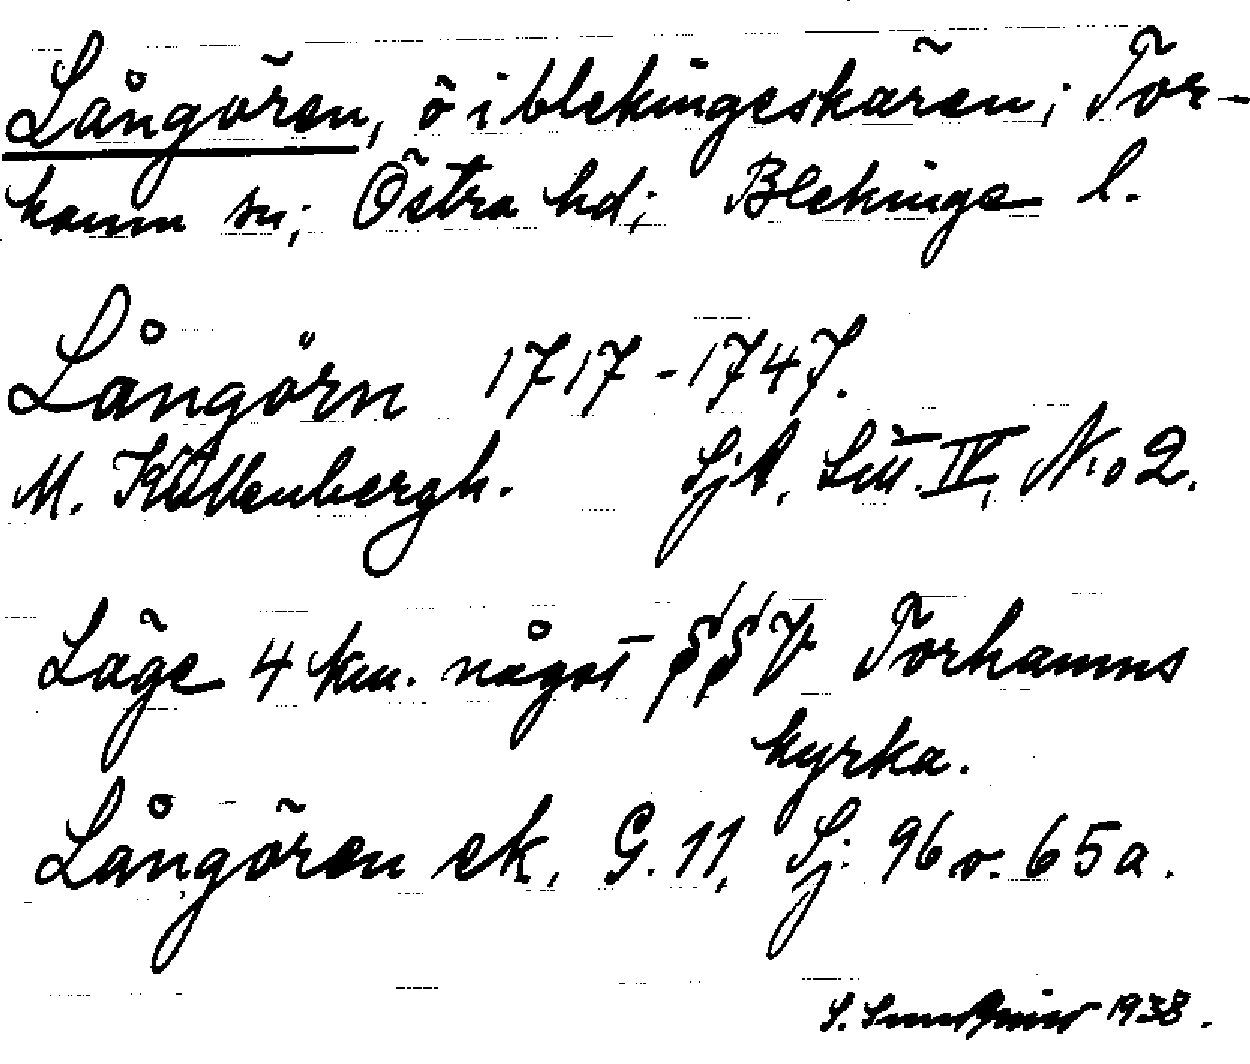 Långören, ö i blekingeskären; Tor-
hamn sn; Östra hd; Blekinge l.
Långörn 1717-1747.
M. Källenbergh. SjA, Litt. IV, No 2.
Läge 4 km. något SSV Torhamns
kyrka.
Långören ek, G. 11, Sj. 96 o. 65a.
S. 1938.